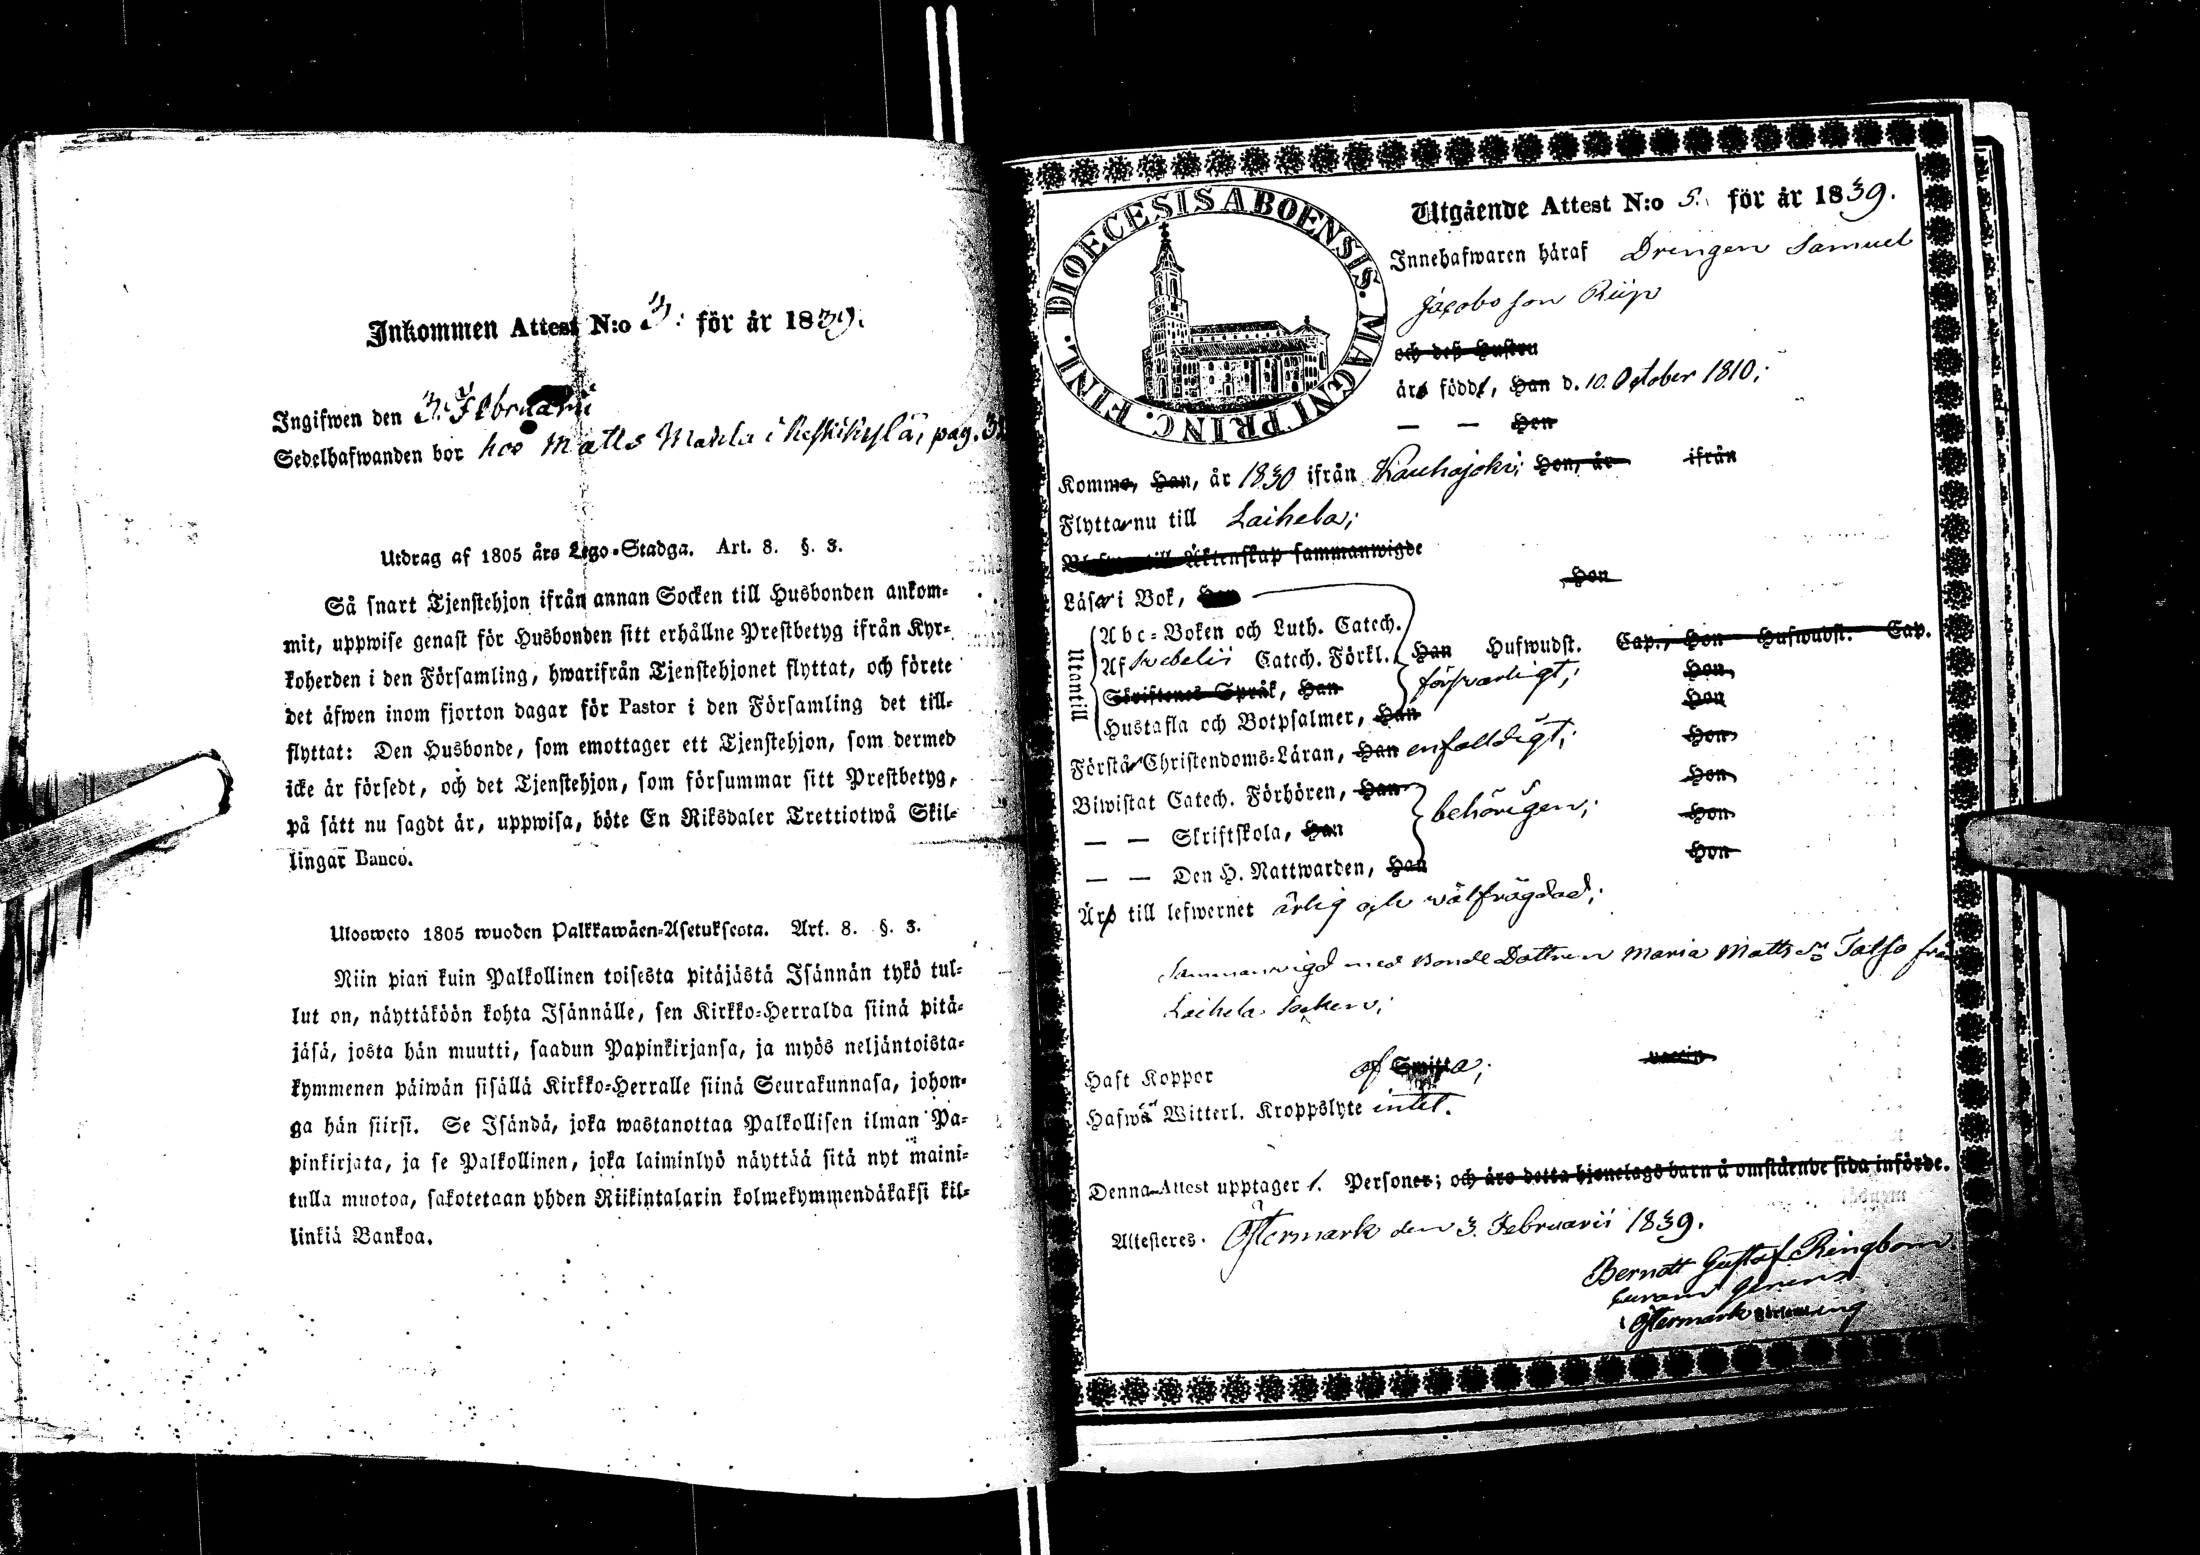 Inkommen Attest N:o 3: för år 1839.
Ingifwen den 3. Februarii
Sedelhafwanden bor hos Matts Makela i Keskikylä, pag. 3
Utdrag af 1805 års Lego-Stadga. Art. 8. §. 3.
Så snart Tjenstehjon ifrån annan Socken till Husbonden ankom=
mit, uppwise genast för Husbonden sitt erhållne Prestbetyg ifrån Kyr=
koherden i den Församling, hwarifrån Tjenstehjonet flyttat, och förete
det äfwen inom fjorton dagar för Pastor i den Församling det till=
flyttat: Den Husbonde, som emottager ett Tjenstehjon, som dermed
icke är försedt, och det Tjenstehjon, som försummar sitt Prestbetyg,
på sätt nu sagdt är, uppwisa, böte En Riksdaler Trettiotwå Skil=
lingar Banco.
Ulosweto 1805 wuoden Palkkawäen-Asetuksesta. Art. 8. §. 3.
Niin pian kuin Palkollinen toisesta pitäjästä Isännän tykö tul=
lut on, näyttäköön kohta Isännälle, sen Kirkko=Herralda siinä pitä=
jäsä, josta hän muutti, saadun Papinkirjansa, ja myös neljäntoista=
kymmenen päiwän sisällä Kirkko=Herralle siinä Seurakunnasa, johon=
ga hän siirsi. Se Isändä, joka wastanottaa Palkollisen ilman Pa=
pinkirjata, ja se Palkollinen, joka laiminlyö näyttää sitä nyt maini=
tulla muotoa, sakotetaan yhden Riikintalarin kolmekymmendäkaksi kil=
linkiä Bankoa.
FINL. DIOECESIS ABOENSIS. MAGNI PRINC.
Utgående Attest N:o 5. för år 1839.
Innehafwaren häraf Drengen Samuel
Jacobsson Riip
och deß Hustru
äro född, Han d. 10. October 1810;
— — Hon
Komme, Han, år 1830 ifrån Kauhajoki; Hon, år ifrån
Flytta nu till Laihela;
till Äktenskap sammanwigde
Läsa i Bok, Han Hon
Utontill
Abc=Boken och Luth. Catech.
Af Svebelii Catech. Förkl. Han Hufwudst. Cap., Hon Hufwudst. Cap.
Skriftenes Språk, Han försvarligt; Hon
Hustafla och Botpsalmer, Han Hon
Förstå Christendoms=Läran, Han enfaldigt; Hon
Biwistat Catech. Förhören, Han Hon
— — Skriftskola, Han behörigen; Hon
— — Den H. Nattwarden, Han Hon
Äro till lefwernet ärlig och wälfrägdad;
Sammanvigd med Bonde Dottren Maria Matts dr Talso från
Laihela Socken;
Haft Koppor af Smitta; vaccin
Hafwa Witterl. Kroppslyte intet.
Denna Attest upptager 1. Personer; och äro detta hjonelags barn å omstående sida införde.
Attesteres. Östermark den 3. Februarii 1839.
Berndt Gustaf Ringbom
Östermark Församling